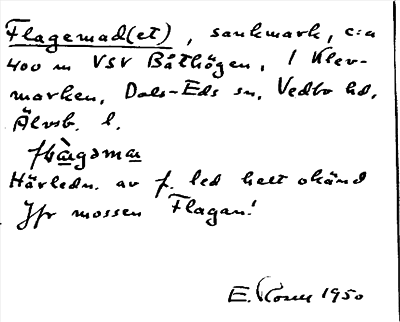 Flagemad(et), sankmark, c:a
400 m VSV Båthögen, i Klev-
marken, Dals-Eds sn, Vedbo hd,
Älvsb. l.
Härledn. av f. led helt okänd
Jfr mossen Flagan!
E. 1950